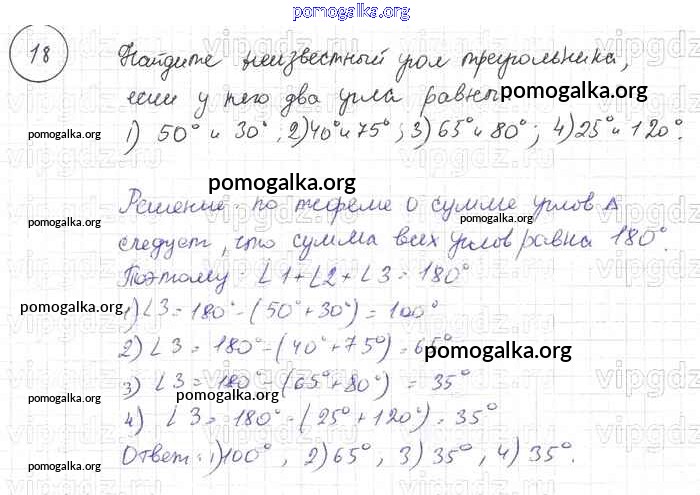 pomogalka.org
18
Найдите неизвестный угол треугольника,
если у него два угла равны:
pomogalka.org
1) 50° и 30°; 2) 40° и 75°; 3) 65° и 80°; 4) 25° и 120°.
pomogalka.org
pomogalka.org
Решение: по теореме о сумме углов Δ
pomogalka.org
pomogalka.org
следует, что сумма всех углов равна 180°.
Поэтому: ∠1+∠2+∠3=180°
1) ∠3=180°-(50°+30°)=100°
pomogalka.org
2) ∠3=180°-(40°+75°)=65°
pomogalka.org
3) ∠3=180°-(65°+80°)=35°
pomogalka.org
4) ∠3=180°-(25°+120°)=35°
Ответ: 1) 100°, 2) 65°, 3) 35°, 4) 35°.
pomogalka.org
vipgdz.ru